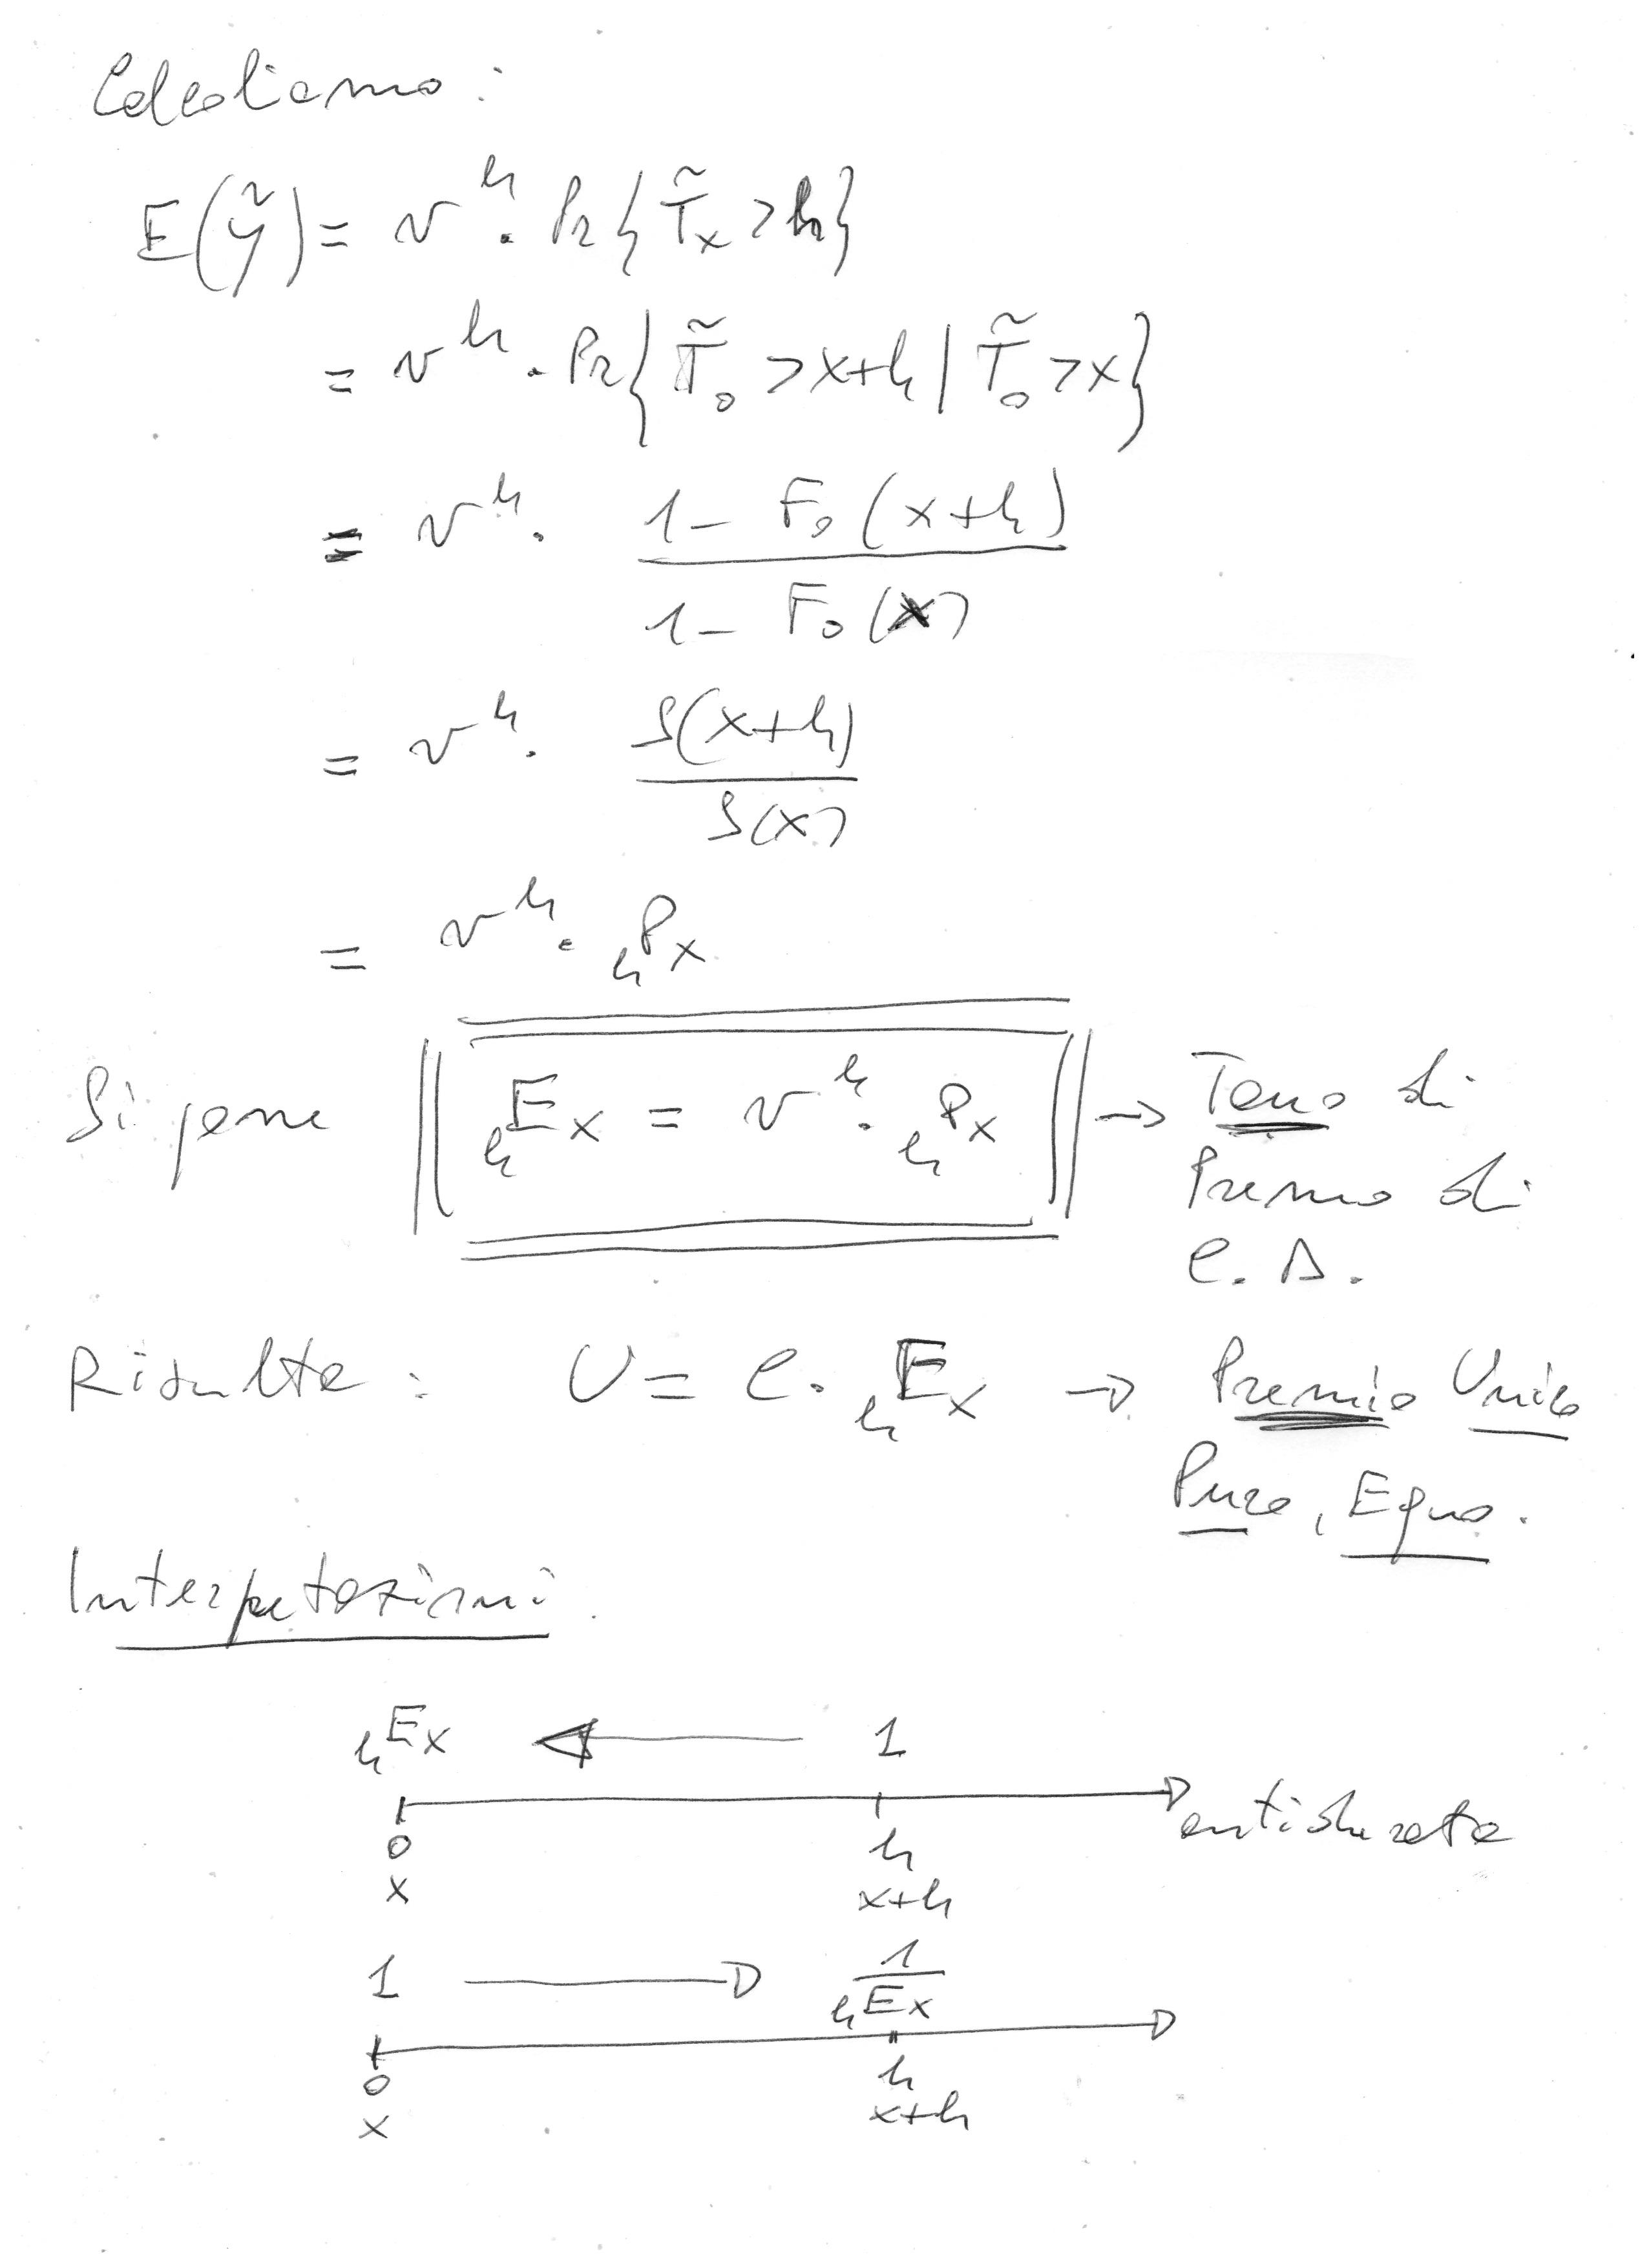 Calcoliamo:
E(ỹ) = v^h · Pr{T̃_x > h}
= v^h · Pr{T̃_0 > x+h | T̃_0 > x}
= v^h · (1 - F_0(x+h)) / (1 - F_0(x))
= v^h · S(x+h) / S(x)
= v^h · _hP_x
Si pone _hE_x = v^h · _hP_x → Tasso di
Premio di
C.D.
Risulta: U = C · _hE_x → Premio Unico
Puro, Equo.
Interpretazioni
_hE_x ← 1
0 h
x x+h
1 → 1 / _hE_x
0 h
x x+h